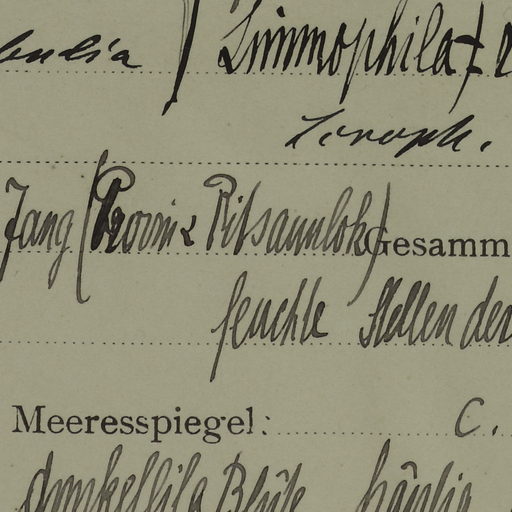 Limmophila
Scroph.
Jang (Provinz Pitsaunlok) Gesamm
feuchte Stellen der
Meeresspiegel: c.
dunkellila Blüte häufig